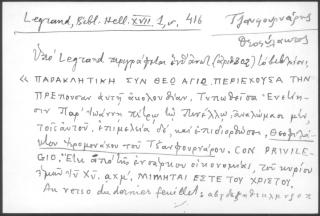 Legrand, Bibl. Hell. XVII 1, ν. 416
Τζανφουρνάρης
Θεοφύλακτος
Ὑπὸ Legrand περιγράφεται ὑπ' ἀριθ.
« ΠΑΡΑΚΛΗΤΙΚΗ ΣΥΝ ΘΕΩ ΑΓΙΩ ΠΕΡΙΕΧΟΥΣΑ ΤΗΝ
ΠΡΕΠΟΥΣΑΝ αυτῇ ἀκολουθίαν. Τυπωθεῖσα Ἐνετίη-
σιν Παρ' Ἰωάννῃ Πέτρῳ τῷ Πινέλλῳ, ἀναλώμασι μὲν
τοῖς αὐτοῦ, ἐπιμελείᾳ δὲ καὶ ἐπιδιορθώσει, Θεοφυλά-
κτου ἱερομονάχου τοῦ Τζανφουρνάρου. CON PRIVILE-
GIO. Ἔτει ἀπὸ τῆς ἐνσάρκου οἰκονομίας, τοῦ κυρίου
ἡμῶν Ἰυ Χυ. αχμ. ΜΙΜΗΤΑΙ ΕΣΤΕ ΤΟΥ ΧΡΙΣΤΟΥ.
Au verso du dernier feuillet: